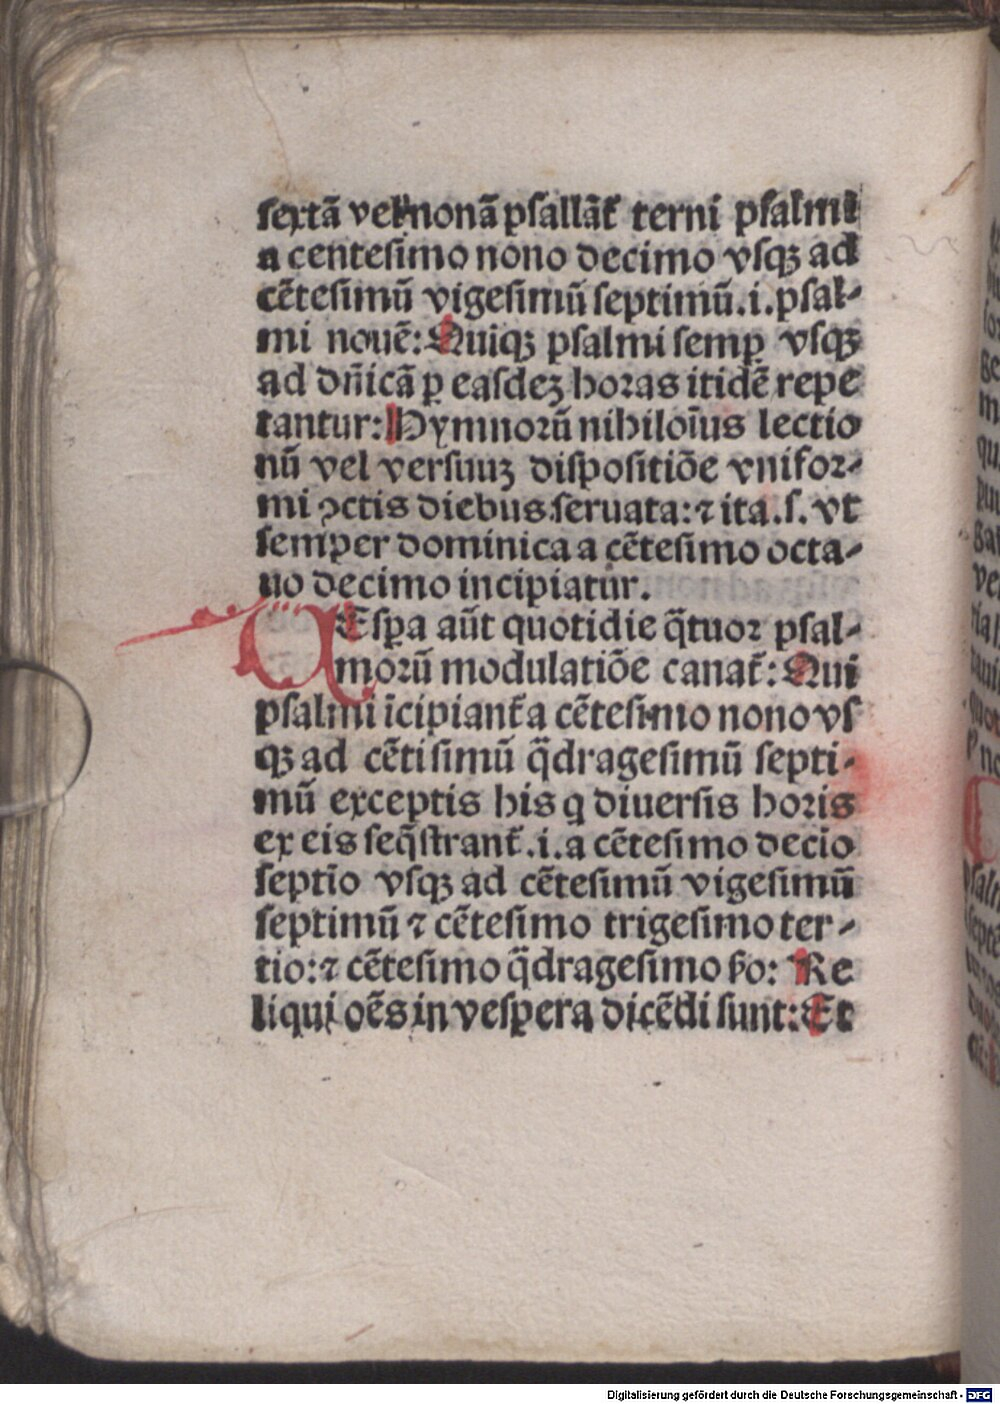 sextā vel nonā psallāt᷑ terni psalmi
a centesimo nono decimo vsqꝫ ad
cētesimū vigesimū septimū .i. psal⸗
mi nouē: Quiqꝫ psalmi semꝑ vsqꝫ
ad dn̄icā ꝑ easdeꝫ horas itidē repe
tantur: Hymnorū nihiloīus lectio
nū vel versuuꝫ dispositiōe vnifor⸗
mi ꝯctis diebus seruata: ⁊ ita .s. vt
semper dominica a cētesimo octa⸗
uo decimo incipiatur.
VEsꝑa aūt quotidie q̄tuor psal⸗
morū modulatiōe canat᷑: Qui
psalmi īcipiant᷑ a cētesimo nono vs
qꝫ ad cētisimū q̄dragesimū septi⸗
mū exceptis his q diuersis horis
ex eis seq̄strant᷑ .i. a cētesimo decīo
septīo vsqꝫ ad cētesimū vigesimū
septimū ⁊ cētesimo trigesimo ter⸗
tio: ⁊ cētesimo q̄dragesimo ṽo: Re
liqui oēs in vesꝑera dicēdi sunt: Et
Digitalisierung gefördert durch die Deutsche Forschungsgemeinschaft - DFG